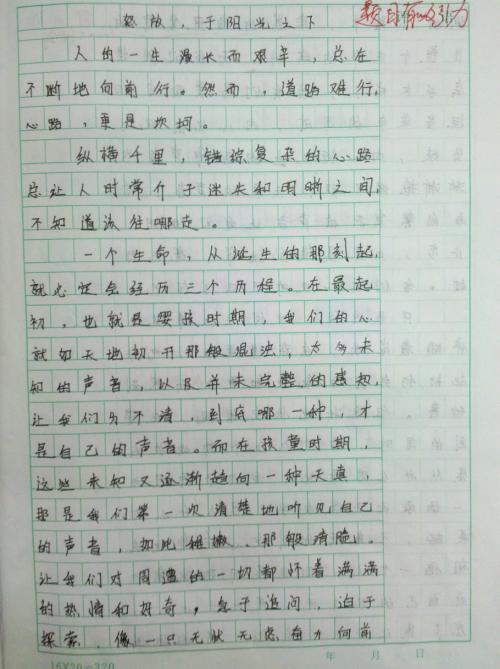 怒放，于阳光之下
题目有吸引力
人的一生漫长而艰辛，总在
不断地向前行。然而，道路难行，
心路，更是坎坷。
纵横千里，错综复杂的心路
总让人时常介于迷失和明晰之间，
不知道该往哪走。
一个生命，从诞生的那刻起，
就必定会经历三个历程。在最起
初，也就是婴孩时期，我们的心
就如天地初开那般混浊，太多未
知的声音，以及并未完整的感知，
让我们分不清，到底哪一种，才
是自己的声音。而在孩童时期，
这些未知又逐渐趋向一种天真，
那是我们第一次清楚地听见自己
的声音，如此稚嫩，那般清脆。
让我们对周遭的一切都怀着满满
的热情和好奇，急于追问，迫于
探索，像一只无忧无虑奋力向前
16×20=320
年 月 日